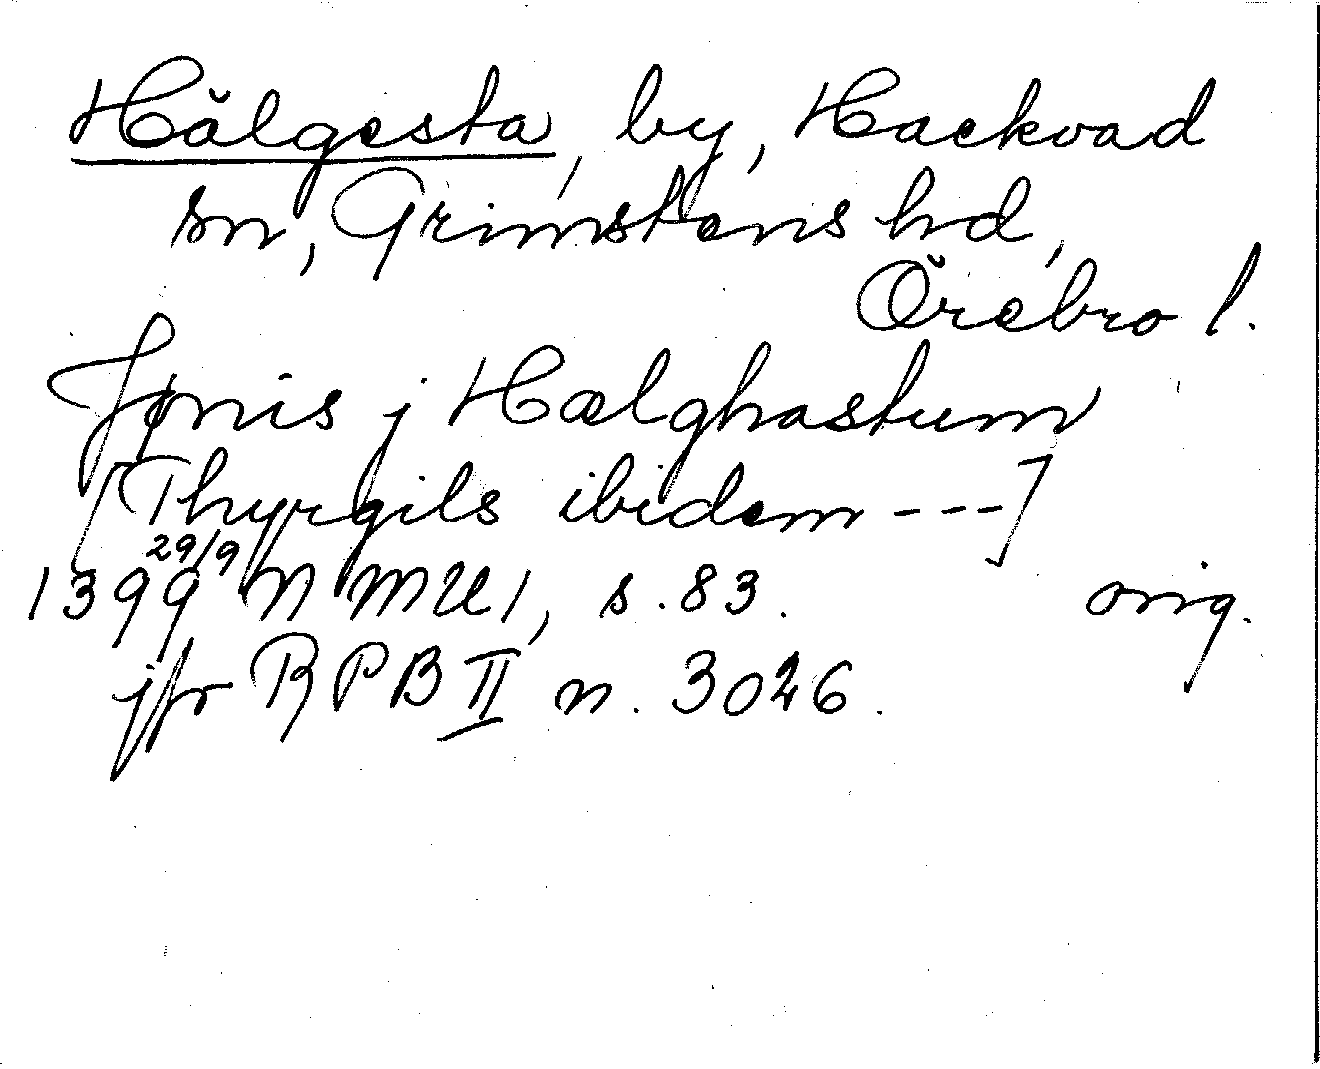 Hälgesta, by, Hackvad
sn, Grimstens hd,
Örebro l.
Jønis j Hælghastum
[Thyrgils ibidem ---]
1399 29/9 N MU1, s. 83. orig.
jfr RPB II n. 3026.